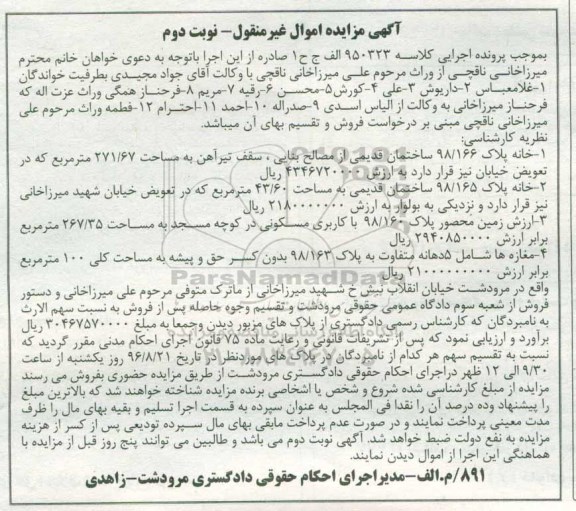 آگهی مزایده اموال غیرمنقول- نوبت دوم
بموجب پرونده اجرایی کلاسه ۹۵۰۳۲۳ الف ج ح۱ صادره از این اجرا باتوجه به دعوی خواهان خانم محترم
میرزاخانی ناقچی از وراث مرحوم علی میرزاخانی ناقچی با وکالت آقای جواد مجیدی بطرفیت خواندگان
۱-غلامعباس ۲-داریوش ۳-علی ۴-کورش ۵-محسن ۶-رقیه ۷-مریم ۸-فرحناز همگی وراث عزت اله که
فرحناز میرزاخانی به وکالت از الیاس اسدی ۹-صدراله ۱۰-احمد ۱۱-احترام ۱۲-فطمه وراث مرحوم علی
میرزاخانی ناقچی مبنی بر درخواست فروش و تقسیم بهای آن میباشد.
نظریه کارشناسی:
۱-خانه پلاک ۹۸/۱۶۶ ساختمان قدیمی از مصالح بنایی ، سقف تیرآهن به مساحت ۲۷۱/۶۷ مترمربع که در
تعویض خیابان نیز قرار دارد به ارزش ۴۳۴۶۷۲۰۰۰۰ ریال
۲-خانه پلاک ۹۸/۱۶۵ ساختمان قدیمی به مساحت ۴۳/۶۰ مترمربع که در تعویض خیابان شهید میرزاخانی
نیز قرار دارد و نزدیکی به بولوار به ارزش ۲۱۸۰۰۰۰۰۰۰ ریال
۳-ارزش زمین محصور پلاک ۹۸/۱۶۰ با کاربری مسکونی در کوچه مسجد به مساحت ۲۶۷/۳۵ مترمربع
برابر ارزش ۲۹۴۰۸۵۰۰۰۰ ریال
۴-مغازه ها شامل ۵دهانه متفاوت به پلاک ۹۸/۱۶۳ بدون کسر حق و پیشه به مساحت کلی ۱۰۰ مترمربع
برابر ارزش ۲۱۰۰۰۰۰۰۰۰۰ ریال
واقع در مرودشت خیابان انقلاب نبش خ شهید میرزاخانی از ماترک متوفی مرحوم علی میرزاخانی و دستور
فروش از شعبه سوم دادگاه عمومی حقوقی مرودشت و تقسیم وجوه حاصله پس از فروش به نسبت سهم الارث
به نامبردگان که کارشناس رسمی دادگستری از پلاک های مزبور دیدن وجمعا به مبلغ ۳۰۴۶۷۵۷۰۰۰۰ ریال
برآورد و ارزیابی نمود که پس از تشریفات قانونی و رعایت ماده ۷۵ قانون اجرای احکام مدنی مقرر گردید که
نسبت به تقسیم سهم هر کدام از نامبردگان در پلاک های موردنظر از تاریخ ۹۶/۸/۲۱ روز یکشنبه از ساعت
۹/۳۰ الی ۱۲ ظهر دراجرای احکام حقوقی دادگستری مرودشت از طریق مزایده حضوری بفروش می رسند
مزایده از مبلغ کارشناسی شده شروع و شخص یا اشخاصی برنده مزایده شناخته خواهند شد که بالاترین مبلغ
را پیشنهاد وده درصد آن را نقدا فی المجلس به عنوان سپرده به قسمت اجرا تسلیم و بقیه بهای مال را ظرف
مدت معینی پرداخت نمایند و در صورت عدم پرداخت مابقی بهای مال سپرده تودیعی پس از کسر از هزینه
مزایده به نفع دولت ضبط خواهد شد. آگهی نوبت دوم می باشد و طالبین می توانند پنج روز قبل از مزایده با
هماهنگی این اجرا از اموال دیدن نمایند.
۸۹۱/م.الف-مدیراجرای احکام حقوقی دادگستری مرودشت-زاهدی
ParsNamadData